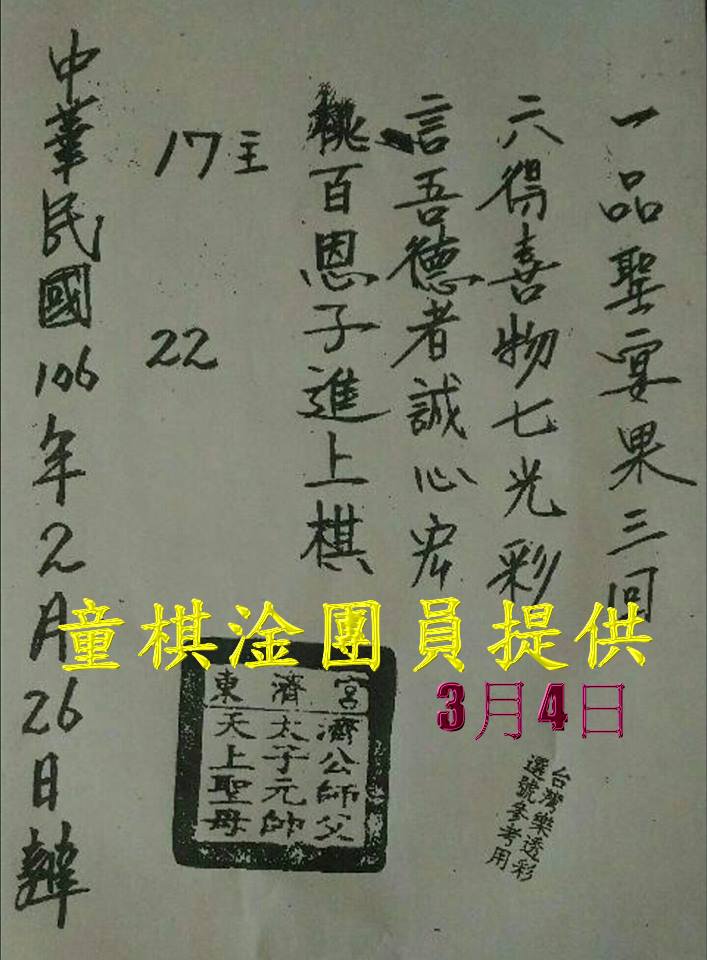 一品聖宴果三回
六得喜物七光彩
言吾德者誠心
桃百恩子進上棋
17主
22
中華民國106年2月26日
童棋淦團員提供
3月4日
東濟宮
濟公師父
太子元帥
天上聖母
台灣樂透彩
選號參考用